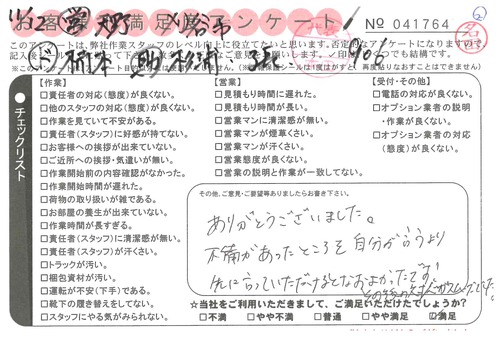 お客様満足度アンケート
11/2
No 041764
このアンケートは、弊社作業スタッフのレベル向上に役立てたいと思います。否定的なアンケートになりますので、
906
チェックリスト
【作業】
□責任者の対応(態度)が良くない。
□他のスタッフの対応(態度)が良くない。
□作業を見ていて不安がある。
□責任者(スタッフ)に好感が持てない。
□お客様への挨拶が出来ていない。
□ご近所への挨拶・気遣いが無い。
□作業開始前の内容確認がなかった。
□作業開始時間が遅れた。
□荷物の取り扱いが雑である。
□お部屋の養生が出来ていない。
□作業時間が長すぎる。
□責任者(スタッフ)に清潔感が無い。
□責任者(スタッフ)が汗くさい。
□トラックが汚い。
□梱包資材が汚い。
□運転が不安(下手)である。
□靴下の履き替えをしてない。
□スタッフにやる気がみられない。
【営業】
□見積もり時間に遅れた。
□見積もり時間が長い。
□営業マンに清潔感が無い。
□営業マンが煙草くさい。
□営業マンが汗くさい。
□営業態度が良くない。
□営業の説明と作業が一致してない。
【受付・その他】
□電話の対応が良くない。
□オプション業者の説明
・作業が良くない。
□オプション業者の対応
(態度)が良くない。
その他、ご意見・ご要望等ありましたらお書き下さい。
ありがとうございました。
不備があったところを自分が言うより
先に言っていただけるとなおよかったです。
☆当社をご利用いただきまして、ご満足いただけたでしょうか?
□不満 □やや不満 □普通 □やや満足 ☑満足